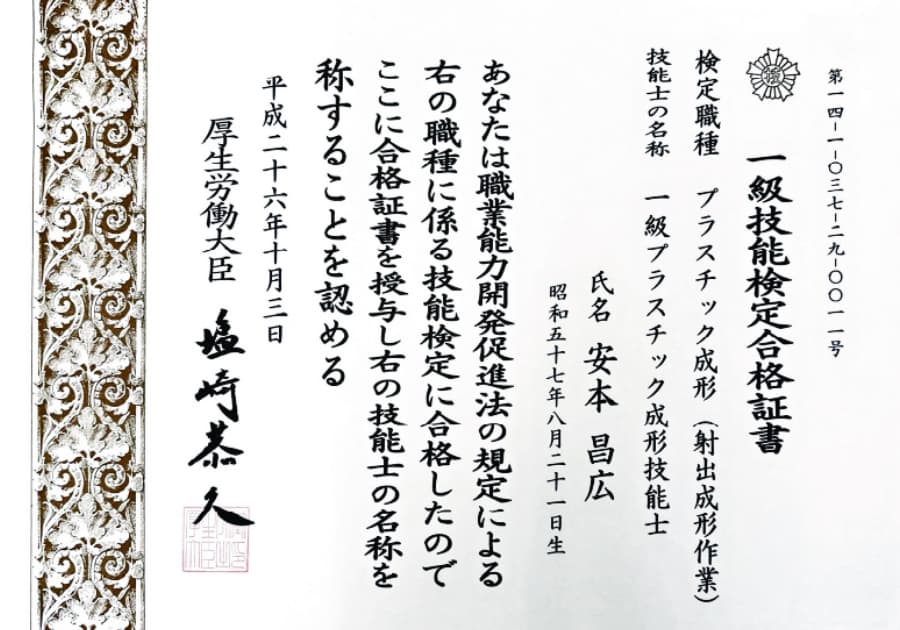 第一四-一-〇三七-二九-〇〇一一号
一級技能検定合格証書
検定職種 プラスチック成形(射出成形作業)
技能士の名称 一級プラスチック成形技能士
氏名 安本 昌広
昭和五十七年八月二十一日生
あなたは職業能力開発促進法の規定による
右の職種に係る技能検定に合格したので
ここに合格証書を授与し右の技能士の名称を
称することを認める
平成二十六年十月三日
厚生労働大臣 塩崎恭久